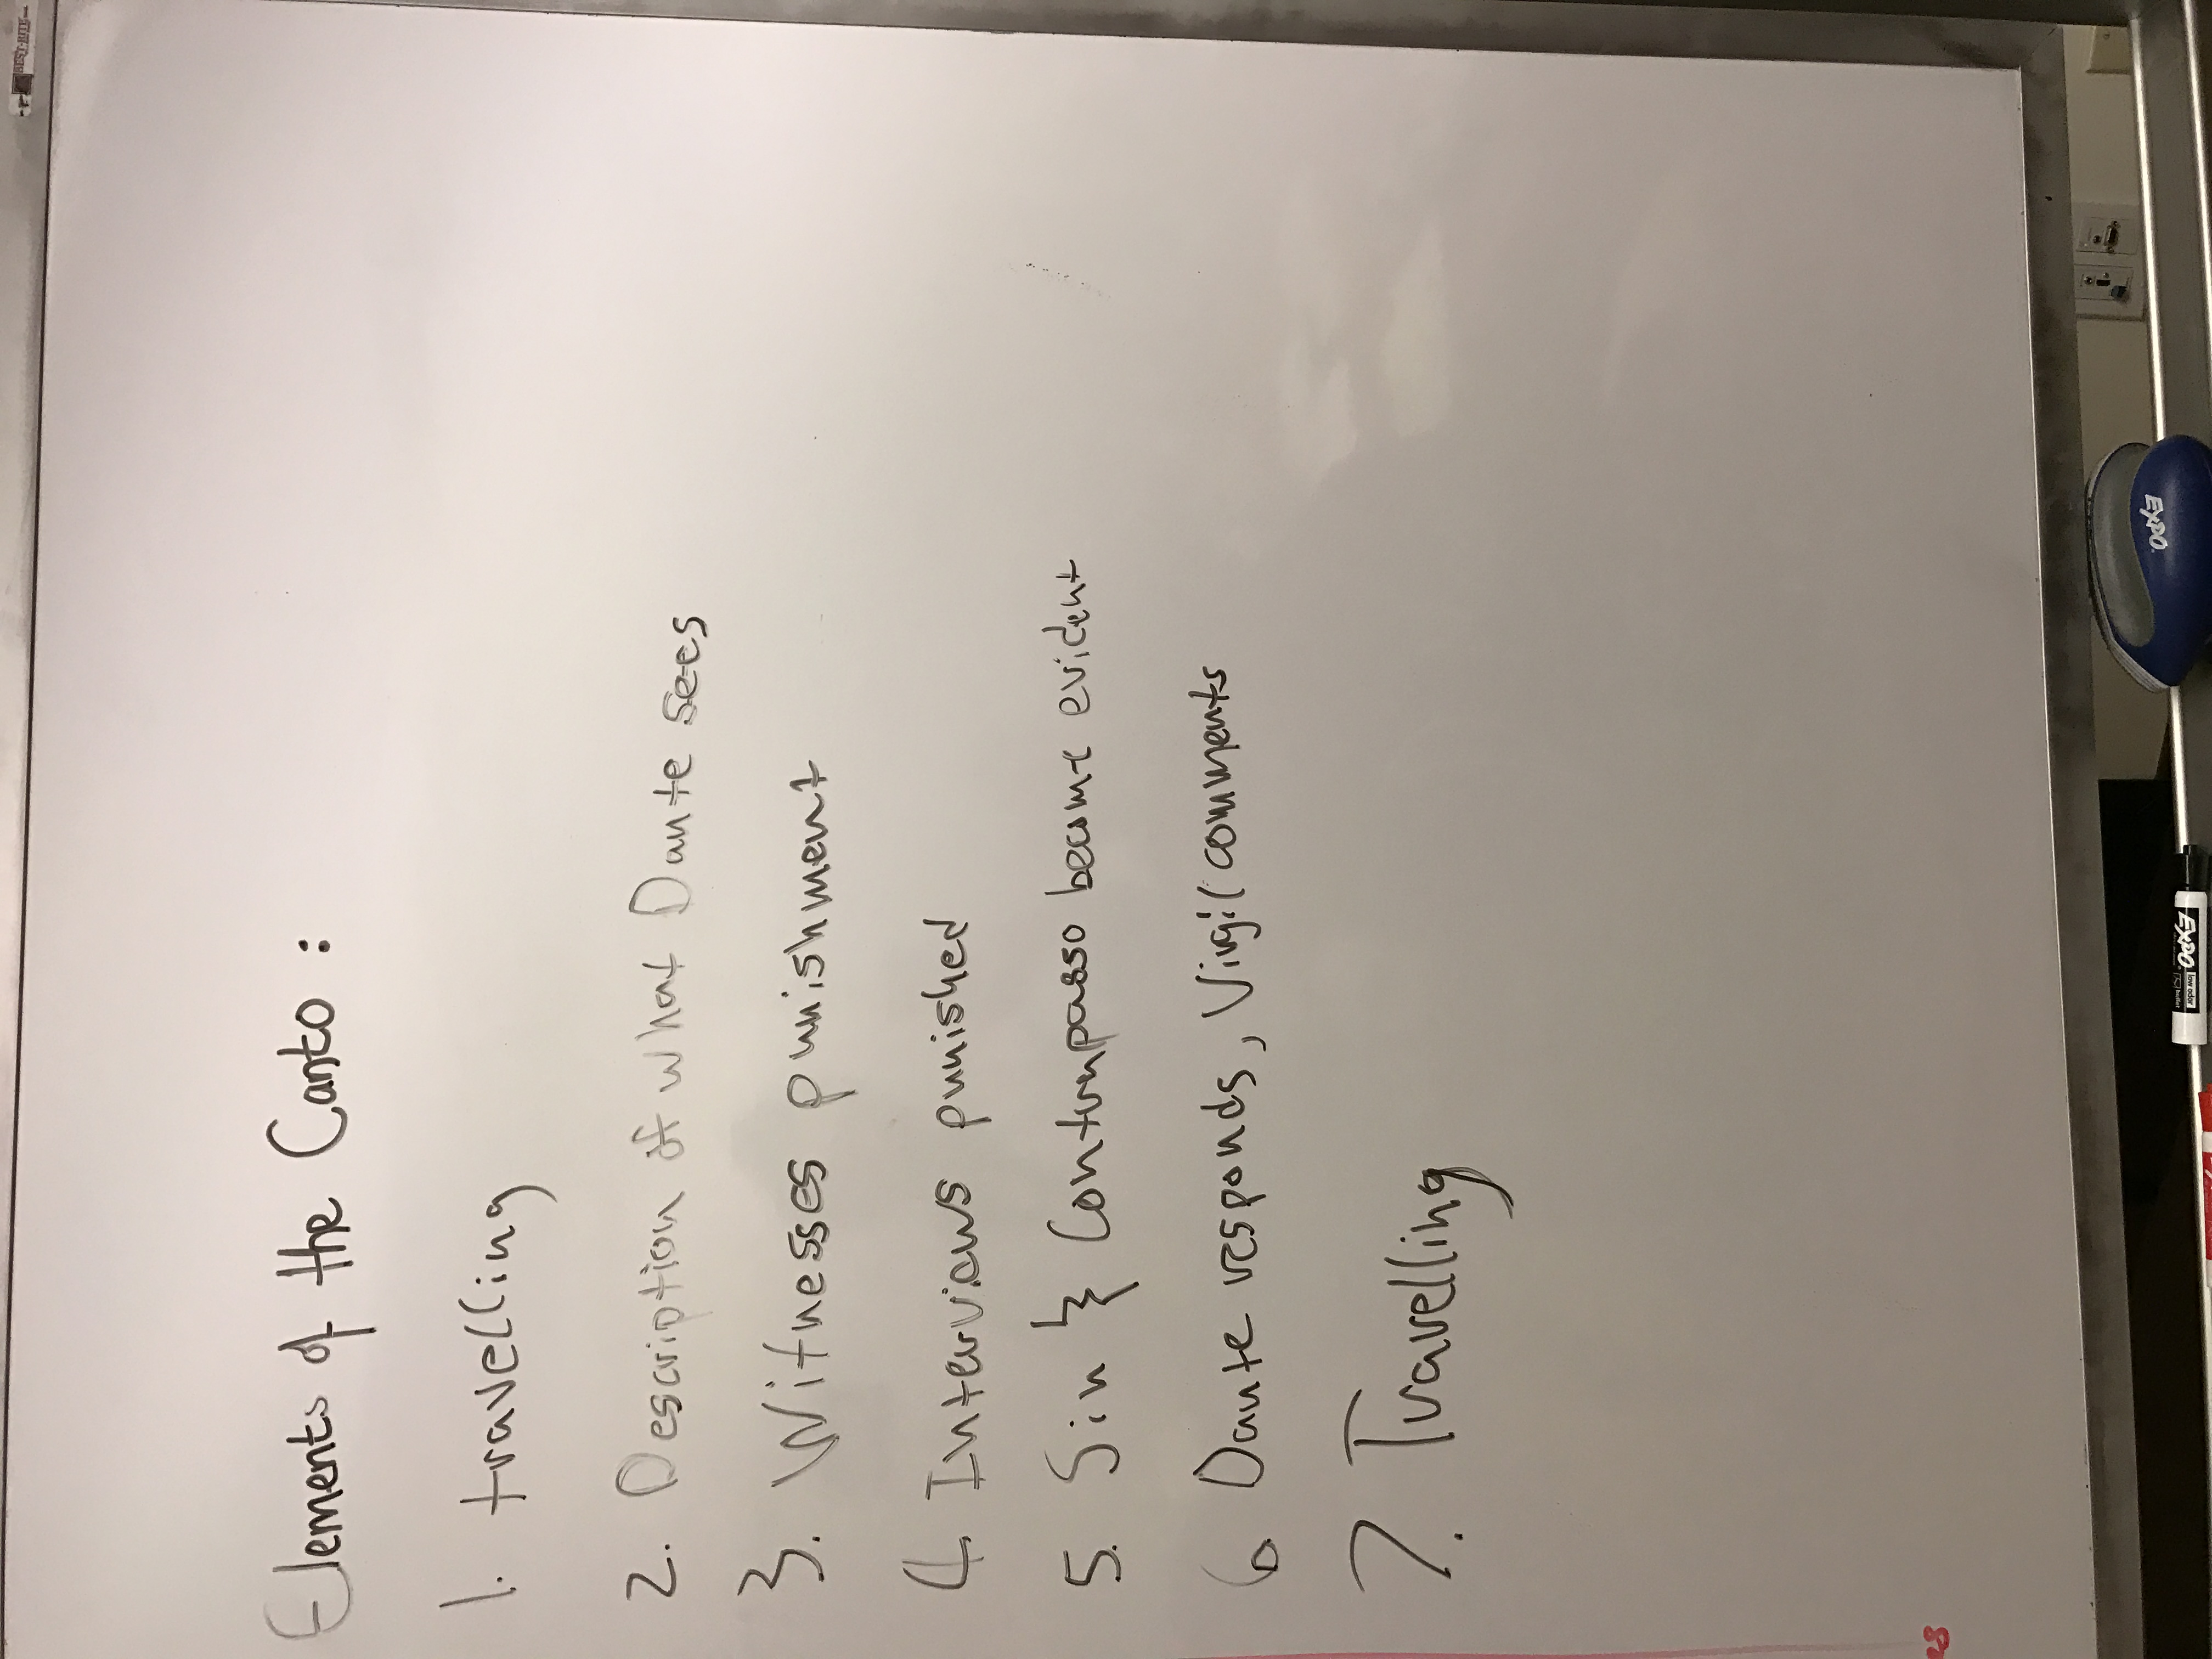 Elements of the Canto:
1. travelling
2. Description of what Dante sees
3. Witnesses punishment
4. Interviews punished
5. Sin } Contrapasso become evident
6 Dante responds, Virgil comments
7. Travelling
EXPO
EXPO
low odor
BEST-RITE